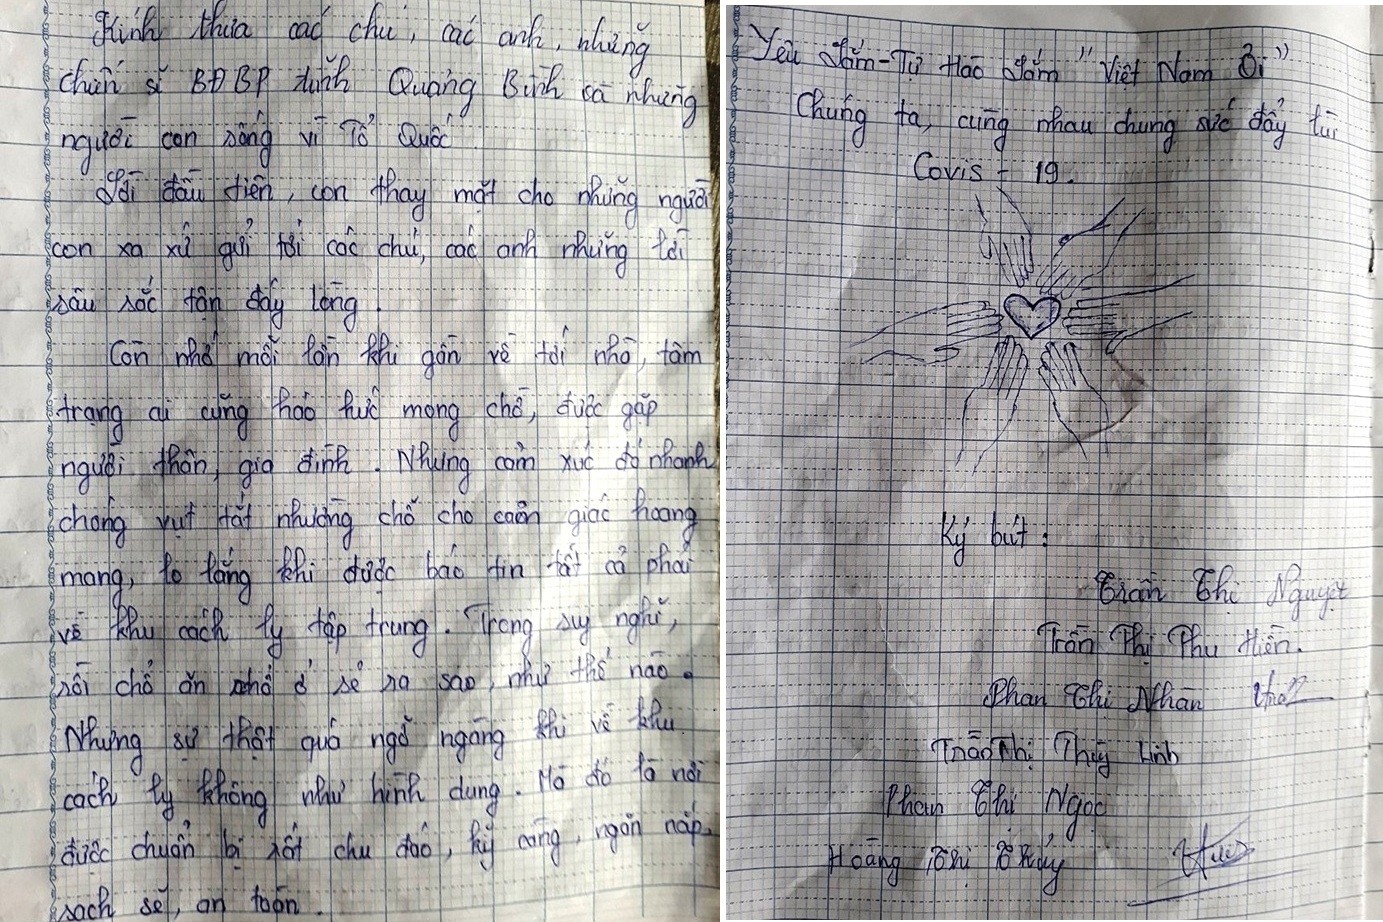 Kính thưa các chú, các anh, những
chiến sĩ BĐBP tỉnh Quảng Bình và những
người con sống vì Tổ Quốc
Lời đầu tiên, con thay mặt cho những người
con xa xứ gửi tới các chú, các anh những lời
sâu sắc tận đáy lòng.
Còn nhớ mỗi lần khi gần về tới nhà, tâm
trạng ai cũng háo hức mong chờ, được gặp
người thân, gia đình. Nhưng cảm xúc đó nhanh
chóng vụt tắt nhường chỗ cho cảm giác hoang
mang, lo lắng khi được báo tin tất cả phải
về khu cách ly tập trung. Trong suy nghĩ,
rồi chổ ăn chổ ở sẻ ra sao, như thế nào.
Nhưng sự thật quá ngỡ ngàng khi về khu
cách ly không như hình dung. Mà đó là nơi
được chuẩn bị rất chu đáo, kỹ càng, ngăn nắp,
sạch sẽ, an toàn.
Yêu Lắm - Tự Hào Lắm "Việt Nam Ơi"
Chúng ta, cùng nhau chung sức đẩy lùi
Covis - 19.
Ký bút:
Trần Thị Nguyệt
Trần Thị Thu Hiền.
Phan Thị Nhàn
Trần Thị Thùy Linh
Phan Thị Ngọc
Hoàng Thị Thúy